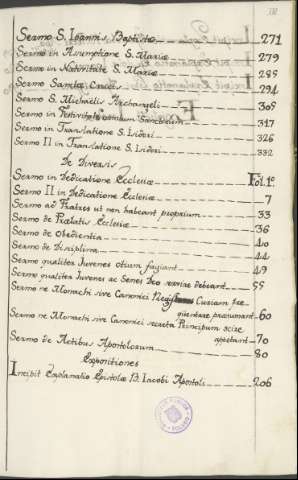 Sermo S. Ioannis Baptistæ 271
Sermo in Assumptione S. Mariæ 279
Sermo in Nativitate S. Mariæ 285
Sermo Sanctæ Crucis 294
Sermo S. Michaelis Archangeli 305
Sermo in Festivitate omnium Sanctorum 317
Sermo in Translatione S. Isidori 326
Sermo II in Translatione S. Isidori 332
De Diversis
Sermo in Dedicatione Ecclesiæ Fol. 1º
Sermo II in Dedicatione Ecclesiæ 7
Sermo ad Fratres ut non habeant proprium 33
Sermo de Prælatis Ecclesiæ 36
Sermo de Obedientia 40
Sermo de Disciplina 44
Sermo qualiter Juvenes otium fugiant 49
Sermo qualiter Juvenes ac Senes Deo servire debeant 55
Sermo ne Monachi sive Canonici Curiam fre
quentare præsumant 60
Sermo ne Monachi sive Canonici secreta Principum scire
appetant 70
Sermo de Actibus Apostolorum 80
Expositiones
Incibit Explanatio Epistolæ B. Iacobi Apostoli 206